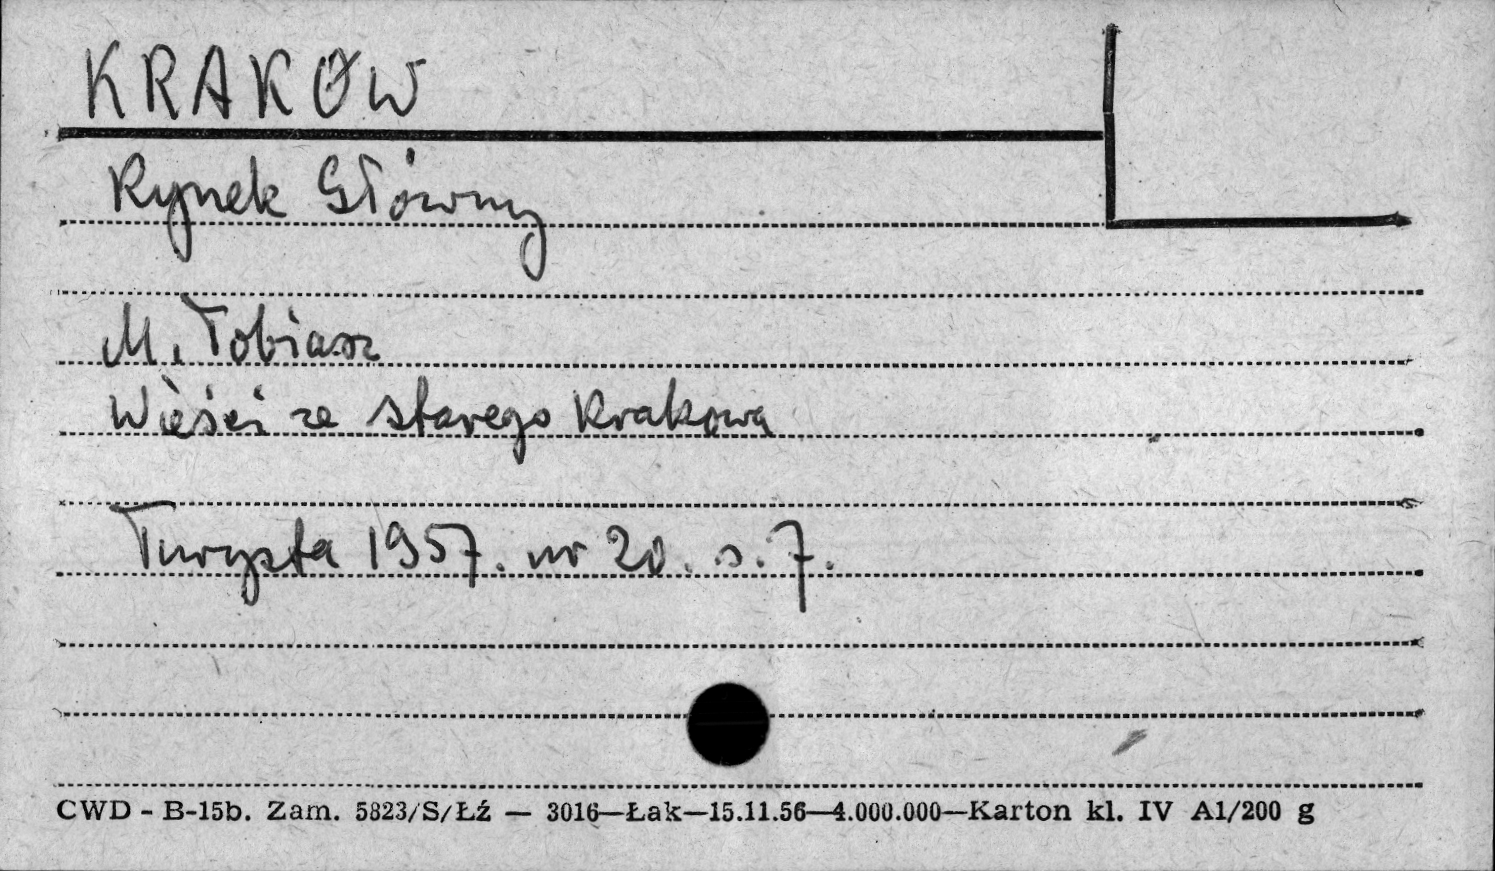 KRAKÓW
Rynek Główny
M. Tobiasz
Wieści ze starego Krakowa
Turysta 1957. nr 20. s. 7.
CWD - B-15b. Zam. 5823/S/Łź — 3016—Łak—15.11.56—4.000.000—Karton kl. IV A1/200 g